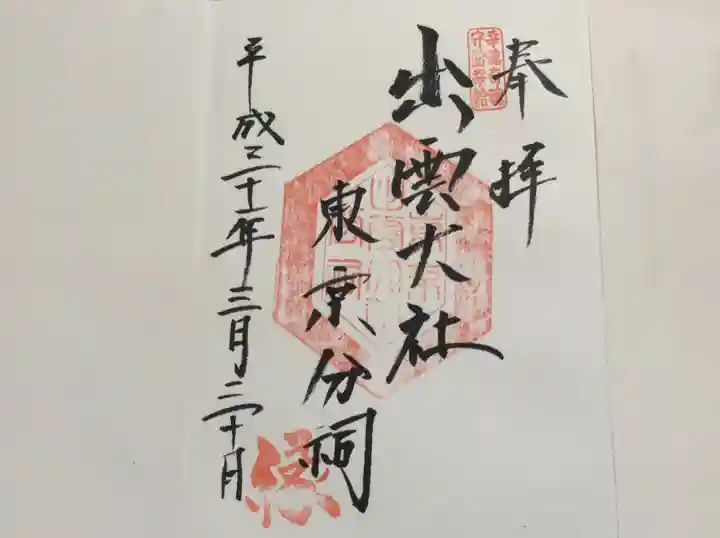 奉拝
出雲大社
東京分祠
平成三十年三月二十日
縁